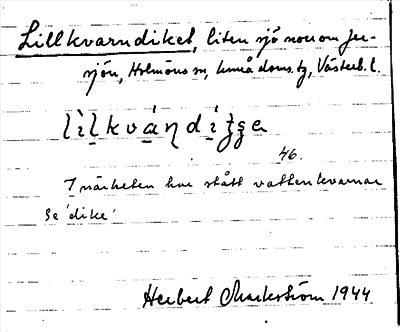 Lillkvarndiket, liten sjö nou om Jer-
sjön, Holmöns sn, Umeå doms. tg, Västerb. l.
lìlkvándíʈʂa
46.
I närheten har stått vattenkvarnar
Se 'dike'
Herbert Markström 1944